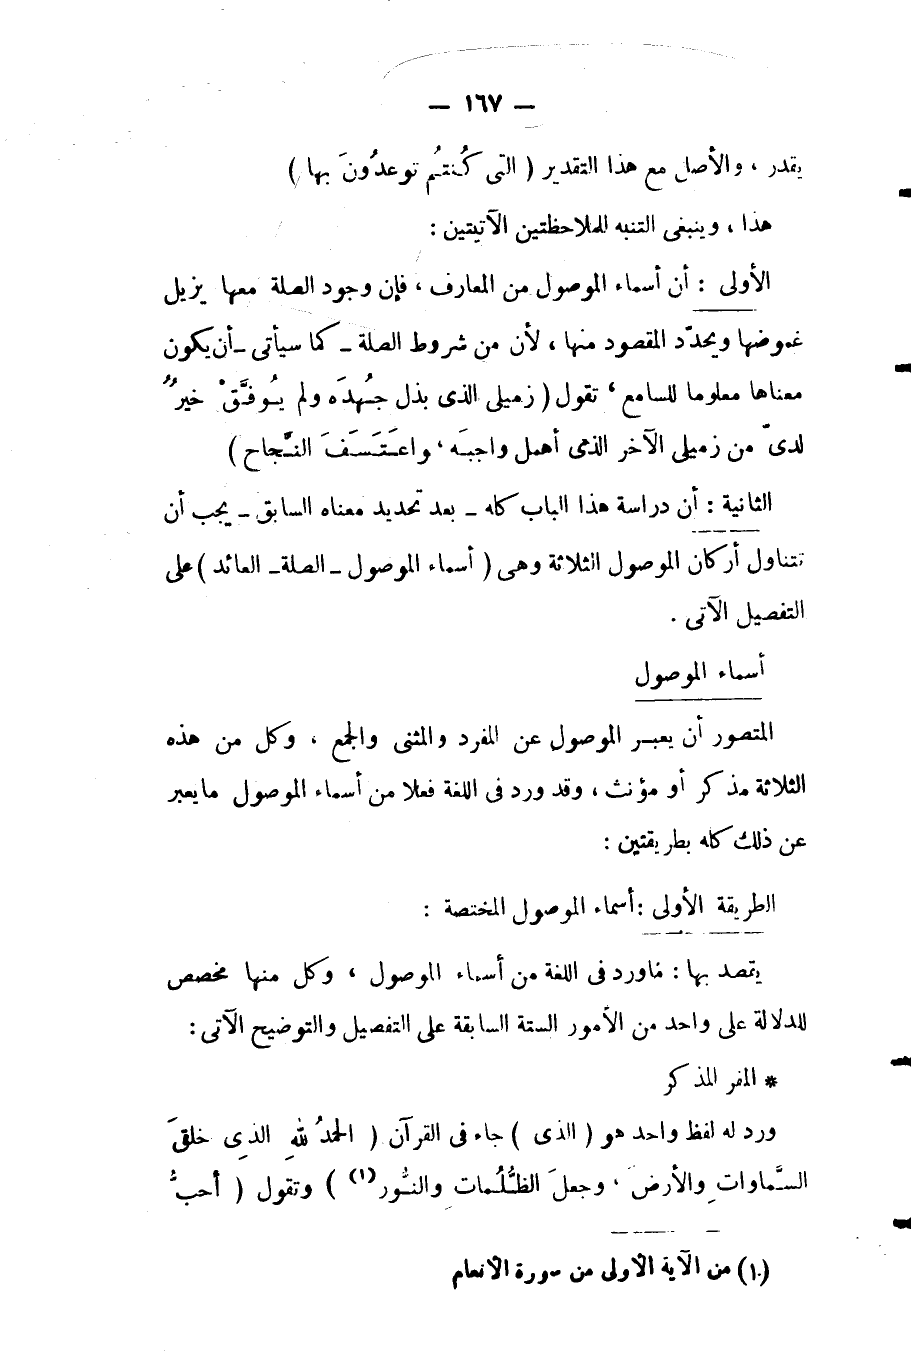 — ١٦٧ —
يقدر ، والأصل مع هذا التقدير ( التى كُنتُم توعدُونَ بها )
هذا ، وينبغى التنبه للملاحظتين الآتيتين :
الأولى : أن أسماء الموصول من المعارف ، فإن وجود الصلة معها يزيل
غموضها ويحدّد المقصود منها ، لأن من شروط الصلة ـ كما سيأتى ـ أن يكون
معناها معلوما للسامع ، تقول ( زميلى الذى بذل جُهدَه ولم يُوفَّقْ خيرٌ
لدىّ من زميلى الآخر الذى أهمل واجبَه ، واعتَسَفَ النَّجاح )
الثانية : أن دراسة هذا الباب كله ـ بعد تحديد معناه السابق ـ يجب أن
تتناول أركان الموصول الثلاثة وهى ( أسماء الموصول ـ الصلة ـ العائد ) على
التفصيل الآتى .
أسماء الموصول
المتصور أن يعبر الموصول عن المفرد والمثنى والجمع ، وكل من هذه
الثلاثة مذكر أو مؤنث ، وقد ورد فى اللغة فعلا من أسماء الموصول ما يعبر
عن ذلك كله بطريقتين :
الطريقة الأولى : أسماء الموصول المختصة :
يقصد بها : ماورد فى اللغة من أسماء الموصول ، وكل منها مخصص
للدلالة على واحد من الأمور الستة السابقة على التفصيل والتوضيح الآتى :
* المفر المذكر
ورد له لفظ واحد هو ( الذى ) جاء فى القرآن ( الحمدُ للهِ الذِى خلقَ
السَّماواتِ والأرضَ ، وجعلَ الظُّلُماتِ والنُّور (١) ) وتقول ( أحبُّ
(١) من الآية الأولى من سورة الأنعام